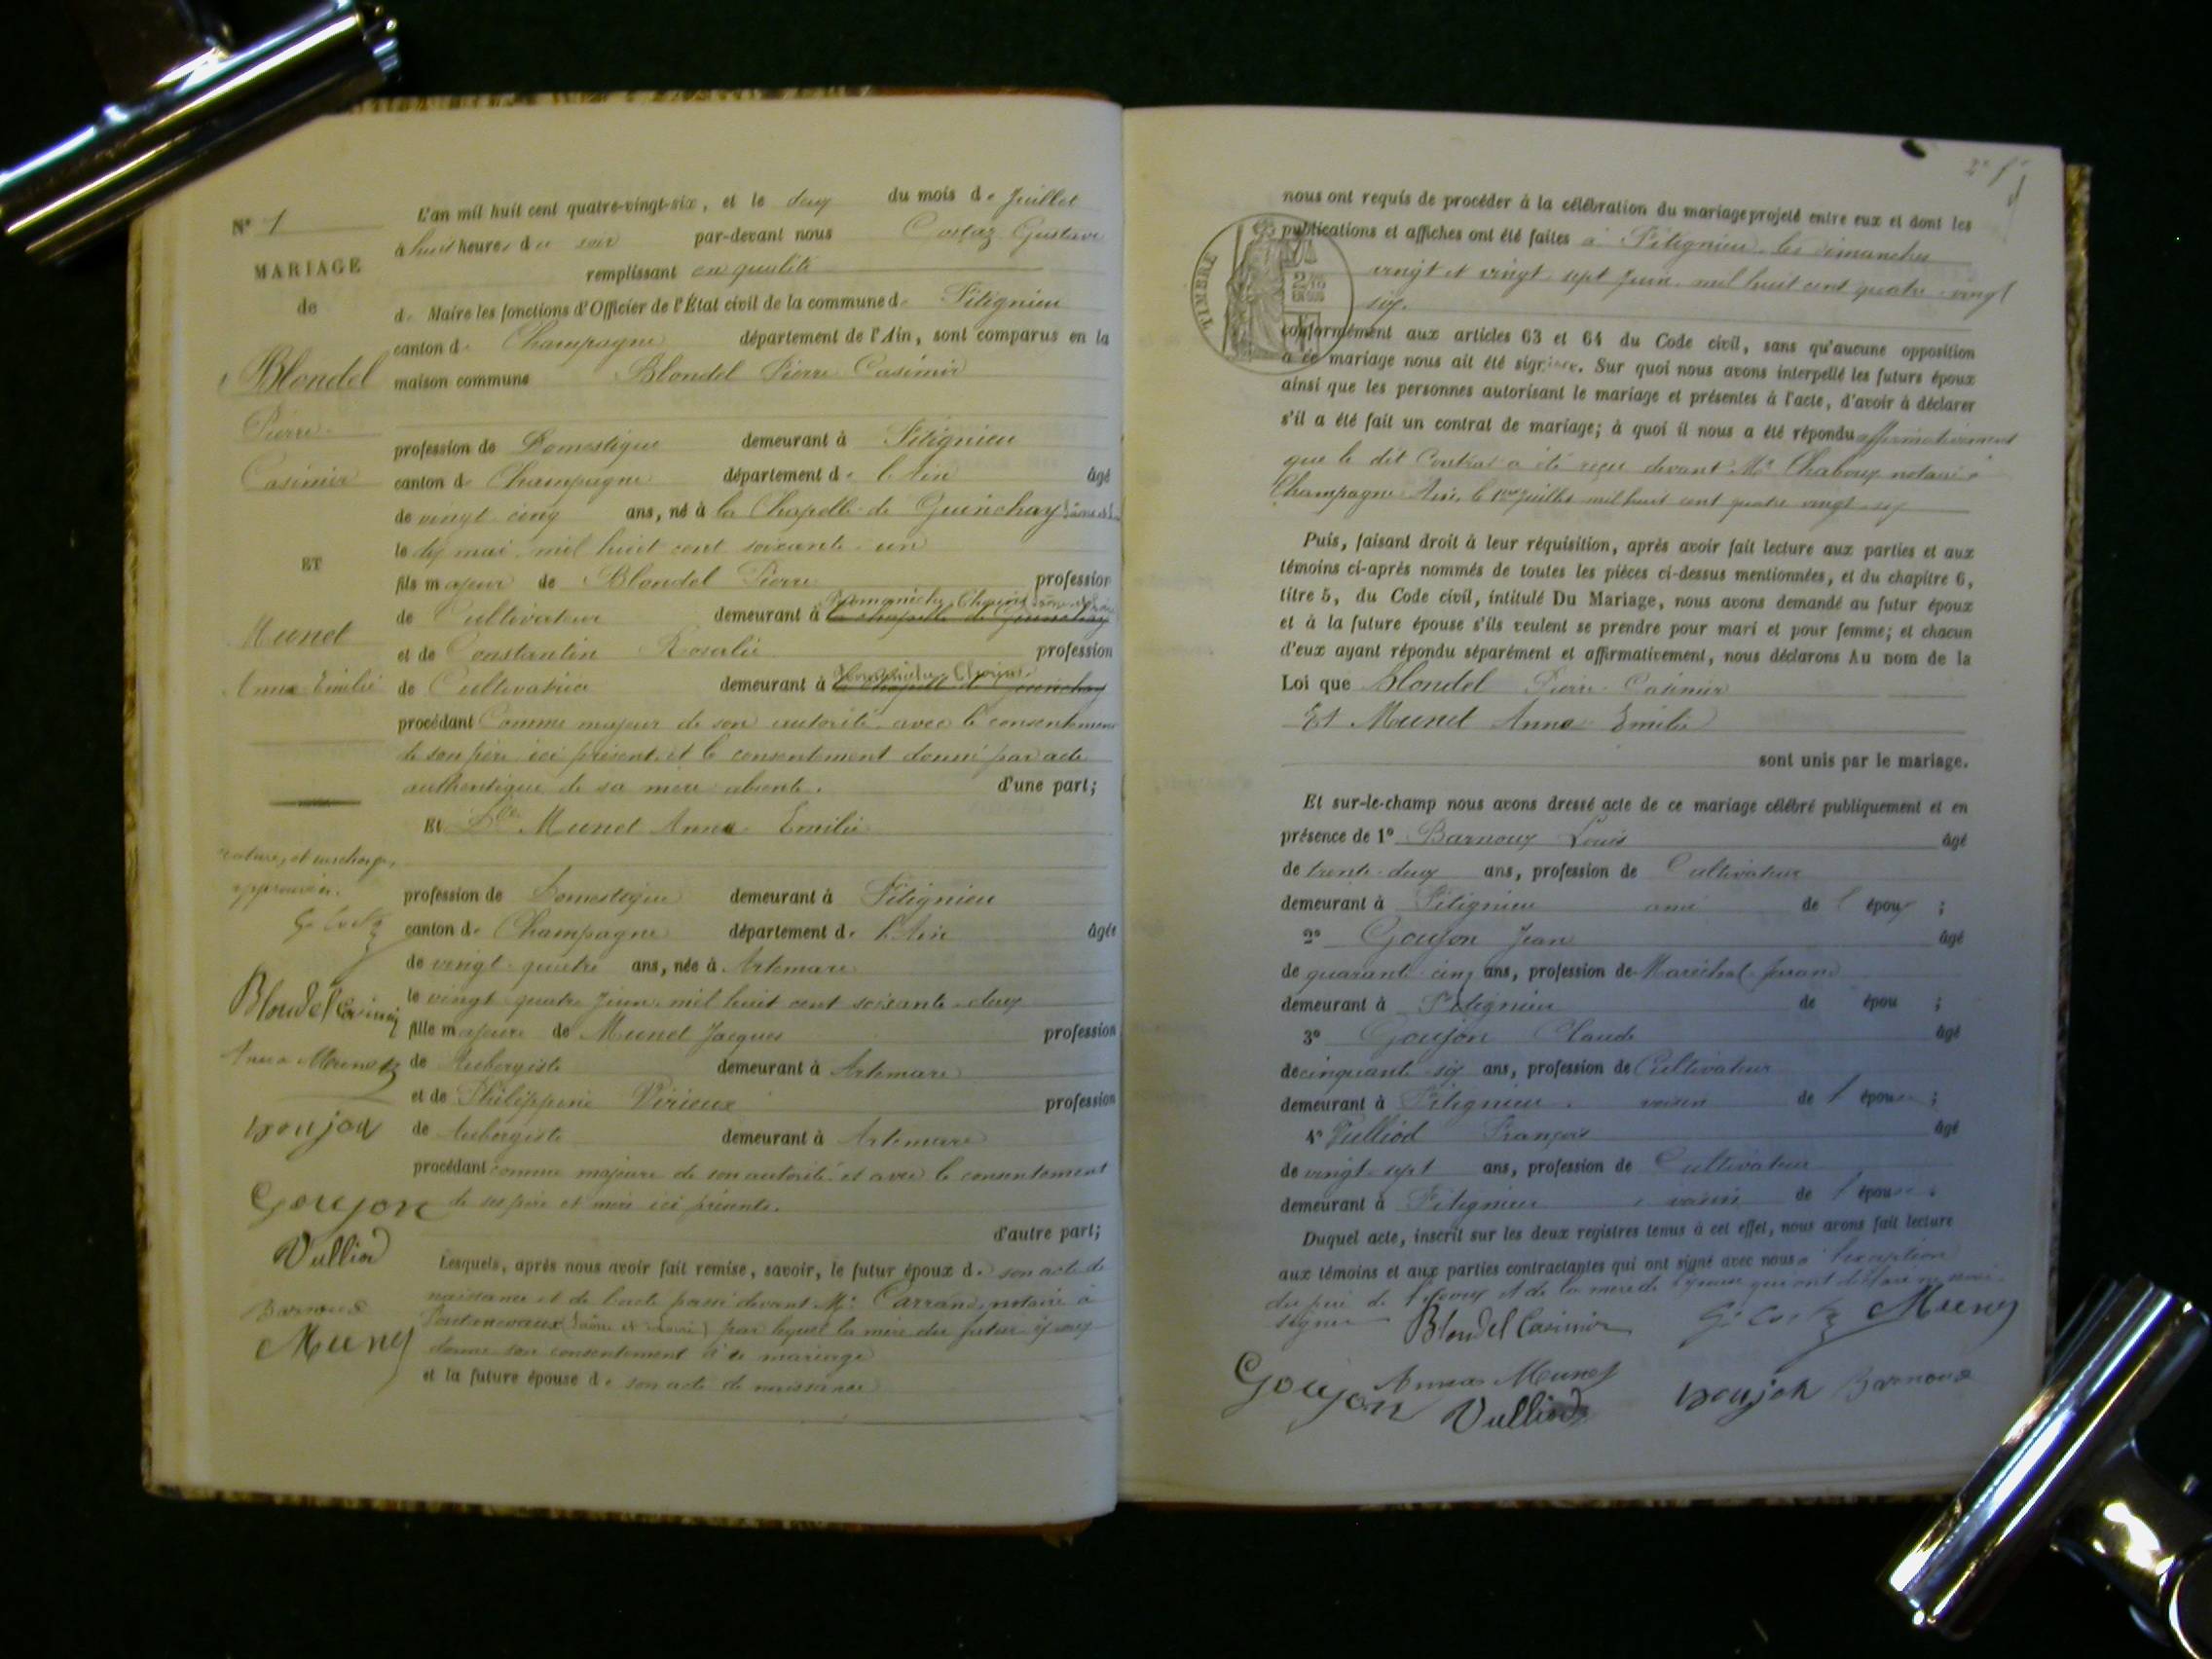 N° 1
MARIAGE
de
Blondel
Pierre
Casimir
ET
Munet
Anna Emilie
approuvés.
Blondel Casimir
Anna Munet
Goujon
Goujon
Vulliod
Barnoux
Munet
L'an mil huit cent quatre-vingt-six, et le deux du mois de Juillet
à huit heures du soir par-devant nous Costaz Gustave
remplissant en qualité
de Maire les fonctions d'Officier de l'État civil de la commune de Fitignieu
canton de Champagne département de l'Ain, sont comparus en la
maison commune Blondel Pierre Casimir
profession de Domestique demeurant à Fitignieu
canton de Champagne département de l'Ain âgé
de vingt-cinq ans, né à la Chapelle de Guinchay
le dix mai mil huit cent soixante-un
fils majeur de Blondel Pierre profession
de Cultivateur demeurant à Romanèche
la chapelle de Guinchay
et de Constantin Rosalie profession
de Cultivatrice demeurant à Romanèche
la chapelle de Guinchay
procédant comme majeur de son autorité avec le consentement
de son père ici présent, et le consentement donné par acte
authentique de sa mère absente. d'une part;
Et Dlle Munet Anna Emilie
profession de Domestique demeurant à Fitignieu
canton de Champagne département de l'Ain âgée
de vingt-quatre ans, née à Artemare
le vingt quatre Juin mil huit cent soixante-deux
fille majeure de Munet Jacques profession
de Aubergiste demeurant à Artemare
et de Philippine Virieux profession
de Aubergiste demeurant à Artemare
procédant comme majeure de son autorité et avec le consentement
de ses père et mère ici présents.
d'autre part;
Lesquels, après nous avoir fait remise, savoir, le futur époux de son acte de
naissance et de l'acte passé devant Me Carrand, notaire à
Pontanevaux (Saône et Loire) par lequel la mère du futur époux
donne son consentement à ce mariage
et la future épouse de son acte de naissance
TIMBRE
nous ont requis de procéder à la célébration du mariage projeté entre eux et dont les
publications et affiches ont été faites à Fitignieu les dimanches
vingt et vingt-sept Juin mil huit cent quatre-vingt
six.
conformément aux articles 63 et 64 du Code civil, sans qu'aucune opposition
à ce mariage nous ait été signifiée. Sur quoi nous avons interpellé les futurs époux
ainsi que les personnes autorisant le mariage et présentes à l'acte, d'avoir à déclarer
s'il a été fait un contrat de mariage; à quoi il nous a été répondu affirmativement
que le dit Contrat a été reçu devant Me Chaboux notaire à
Champagne Ain, le 1er Juillet mil huit cent quatre vingt-six
Puis, faisant droit à leur réquisition, après avoir fait lecture aux parties et aux
témoins ci-après nommés de toutes les pièces ci-dessus mentionnées, et du chapitre 6,
titre 5, du Code civil, intitulé Du Mariage, nous avons demandé au futur époux
et à la future épouse s'ils veulent se prendre pour mari et pour femme; et chacun
d'eux ayant répondu séparément et affirmativement, nous déclarons Au nom de la
Loi que Blondel Pierre Casimir
Et Munet Anna Emilie
sont unis par le mariage.
Et sur-le-champ nous avons dressé acte de ce mariage célébré publiquement et en
présence de 1° Barnoux Louis âgé
de trente-deux ans, profession de Cultivateur
demeurant à Fitignieu ami de l'époux ;
2° Goujon Jean âgé
de quarante-cinq ans, profession de Maréchal-ferrand
demeurant à Fitignieu de épou ;
3° Goujon Claude âgé
de cinquante-six ans, profession de Cultivateur
demeurant à Fitignieu voisin de l'épouse ;
4° Vulliod François âgé
de vingt-sept ans, profession de Cultivateur
demeurant à Fitignieu voisin de l'épouse
Duquel acte, inscrit sur les deux registres tenus à cet effet, nous avons fait lecture
aux témoins et aux parties contractantes qui ont signé avec nous à l'exception
du père de l'époux et de la mère de l'épouse qui ont déclaré ne savoir
signer
Blondel Casimir
Munet
Goujon
Anna Munet
Vulliod
Goujon
Barnoux